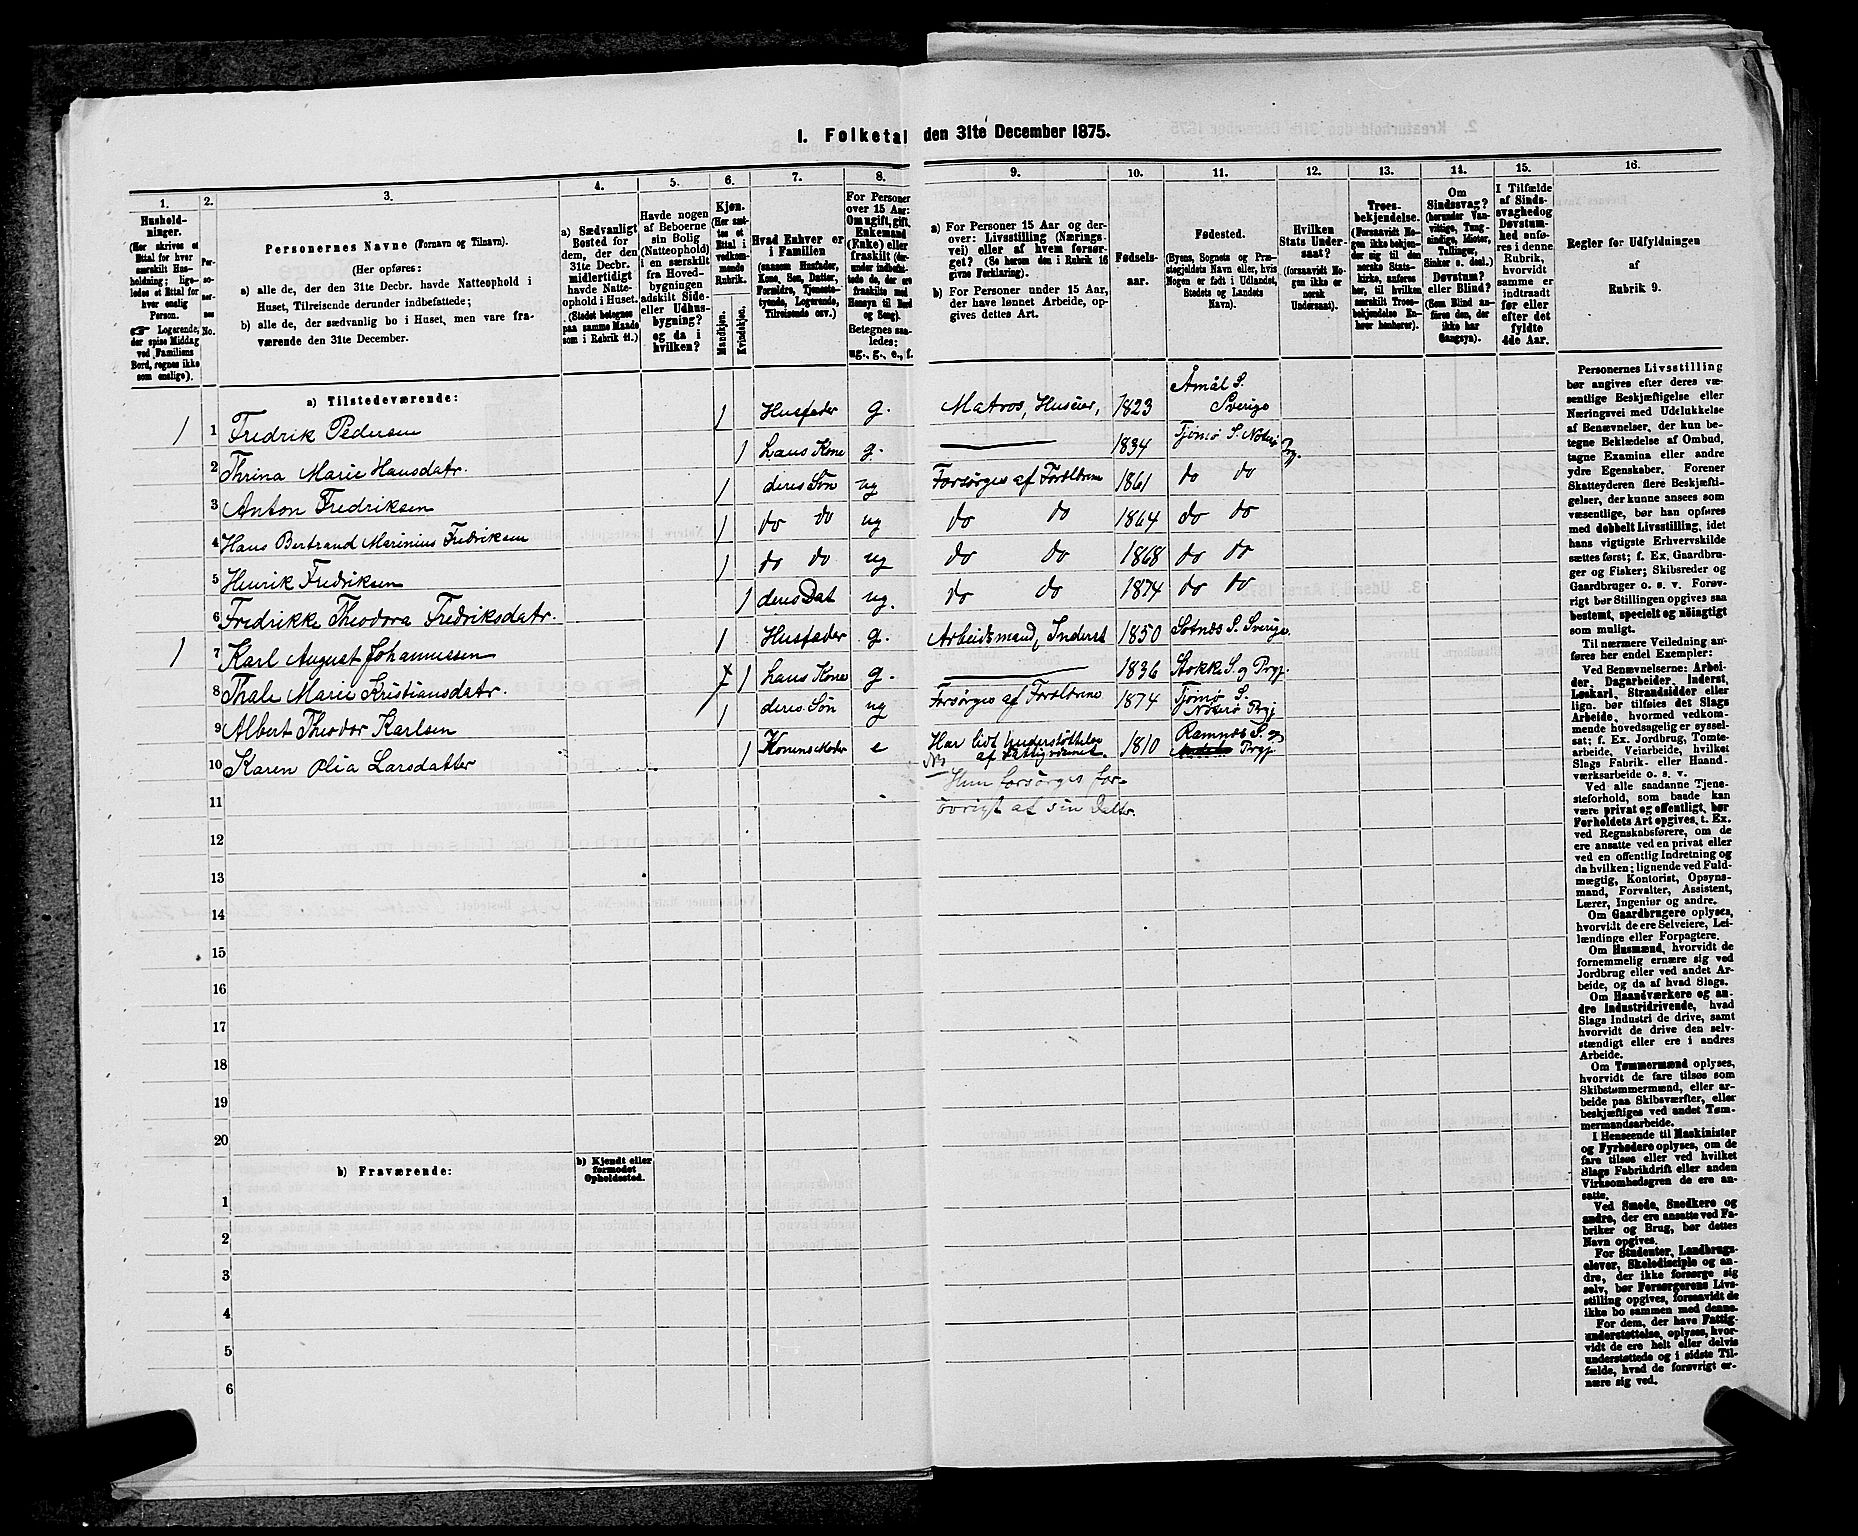 1. Folketal den 31te December 1875.
1. 2. 3. 4. 5. 6. 7. 8. 9. 10. 11. 12. 13. 14. 15. 16.
Hushold-
ninger.
(Her skrives et
Ettal for hver
særskilt Hus-
holdning; lige-
ledes et Ettal for
hver enslig
Person.
☞ Logerende,
der spise Middag
ved Familiens
Bord, regnes ikke
som enslige).
Per-
so-
ner-
nes
No.
Personernes Navne (Fornavn og Tilnavn).
(Her opføres:
a) alle de, der den 31te Decbr. havde Natteophold i
Huset, Tilreisende derunder indbefattede;
b) alle de, der sædvanlig bo i Huset, men vare fra-
værende den 31te December.
a) Sædvanligt
Bosted for
dem, der den
31te Decbr.
midlertidigt
havde Natte-
ophold i Huset.
(Stedet betegnes
paa samme Maade
som i Rubrik 11.)
Havde nogen
af Beboerne
sin Bolig
(Natteophold)
i en særskilt
fra Hoved-
bygningen
adskilt Side-
eller Udhus-
bygning?
og da i
hvilken?
Kjøn.
(Her sæt-
tes et
Ettal i
vedkom-
mende
Rubrik.
Mandkjøn.
Kvindekjøn.
Hvad Enhver er
i Familien
(saasom Husfader,
Kone, Søn, Datter,
Forældre, Tjeneste-
tyende, Logerende,
Tilreisende osv.)
For Personer
over 15 Aar:
Om ugift, gift,
Enkemand
(Enke) eller
fraskilt (der-
under indbefat-
tede de, der ere
fraskilte med
Hensyn til Bord
og Seng).
Betegnes saa-
ledes:
ug., g., e., f.
a) For Personer 15 Aar og der-
over: Livsstilling (Nærings-
vei) eller af hvem forsør-
get? (Se herom den i Rubrik 16
givne Forklaring).
b) For Personer under 15 Aar,
der have lønnet Arbeide, op-
gives dettes Art.
Fødsels-
aar.
Fødested.
(Byens, Sognets og Præ-
stegjeldets Navn eller, hvis
Nogen er født i Udlandet,
Stedets og Landets
Navn).
Hvilken
Stats Under-
saat?
(forsaavidt No-
gen ikke er
norsk
Undersaat).
Troes-
bekjendelse.
(Forsaavidt No-
gen ikke bekjen-
der sig til den
norske Stats-
kirke, anføres
her, til hvilken
særskilt Troes-
bekjendelse En-
hver henhører).
Om
Sindssvag?
(herunder Van-
vittige, Tung-
sindige, Idioter,
Tullinger,
Sinker o. desl.)
Døvstum?
eller Blind?
(Som Blind an-
føres den, der
ikke har
Gangsyn).
I Tilfælde
af Sinds-
svaghed og
Døvstum-
hed anfø-
res i denne
Rubrik,
hvorvidt
samme er
indtraadt
før eller
efter det
fyldte
4de Aar.
Regler for Udfyldningen
af
Rubrik 9.
a) Tilstedeværende:
1 1 Fredrik Pedersen 1 Husfader g. Matros, Huseier, 1823 Åmål S. Sverige
2 Thrina Marie Hansdatr. 1 hans Kone g. 1834 Tjømø S. Nøterø Pg.
3 Anton Fredriksen 1 deres Søn ug Forsørges af Forældrene 1861 do do
4 Hans Bertrand Marinius Fredriksen 1 do do ug do do 1864 do do
5 Henrik Fredriksen 1 do do ug do do 1868 do do
6 Fredrikke Theodora Fredriksdatr. 1 deres Dat ug. do do 1874 do do
1 7 Karl August Johannessen 1 Husfader g. Arbeidsmand, Inderst 1850 Sverige
8 Thale Marie Kristiansdatr. 1 hans Kone g. 1836 Stokke S. og Prgj.
9 Albert Theodor Karlsen 1 deres Søn ug Forsørges af Forældrene 1874 Tjømø S. Nøterø Prgj
10 Karen Olia Larsdatter 1 Konens Moder e Har lidt Understøttelse af Fattigvæsenet 1810 Ramnæs S. og Prgj.
Hun forsørges for-
øvrigt af sin Dattr.
11
12
13
14
15
16
17
18
19
20
b) Fraværende:
b) Kjendt eller
formodet
Opholdssted.
1
2
3
4
5
6
Personernes Livsstilling
bør angives efter deres væ-
sentlige Beskjæftigelse eller
Næringsvei med Udelukkelse
af Benævnelser, der kun be-
tegne Beklædelse af Ombud,
tagne Examina eller andre
ydre Egenskaber. Forener
Skatteyderen flere Beskjæfti-
gelser, der kunne ansees som
væsentlige, bør han opføres
med dobbelt Livsstilling, idet
hans vigtigste Erhvervskilde
sættes først; f. Ex. Gaardbru-
ger og Fisker; Skibsreder og
Gaardbruger o. s. v. Forøv-
rigt bør Stillingen opgives saa
bestemt, specielt og nøiagtigt
som muligt.
Til nærmere Veiledning an-
føres her endel Exempler:
Ved Benævnelserne: Arbei-
der, Dagarbeider, Inderst,
Løskarl, Strandsidder eller
lign. bør tilføies det Slags
Arbeide, hvormed vedkom-
mende hovedsagelig er syssel-
sat; f. Ex. Jordbrug, Tomte-
arbeide, Veiarbeide, hvilket
Slags Fabrik- eller Haand-
værksarbeide o. s. v.
Ved alle saadanne Tjene-
steforhold, som baade kan
være privat og offentligt, bør
Forholdets Art opgives, t. Ex.
ved Regnskabsførere, om de
ere ansatte ved en privat eller
ved en offentlig Indretning og
da hvilken; lignende ved Fuld-
mægtig, Kontorist, Opsyns-
mand, Forvalter, Assistent,
Lærer, Ingeniør og andre.
Om Gaardbrugere oplyses,
hvorvidt de ere Selveiere, Lei-
lændinge eller Forpagtere.
Om Husmænd, hvorvidt de
fornemmelig ernære sig ved
Jordbrug eller ved andet Ar-
beide, og da af hvad Slags.
Om Haandværkere og an-
dre Industridrivende, hvad
Slags Industri de drive, samt
hvorvidt de drive den selv-
stændigt eller ere i andres
Arbeide.
Om Tømmermænd oplyses,
hvorvidt de fare tilsøs som
Skibstømmermænd, eller ar-
beide paa Skibsværfter, eller
beskjæftiges ved andet Tøm-
mermandsarbeide.
I Henseende til Maskinister
og Fyrbødere oplyses, om de
fare tilsøs eller ved hvilket
Slags Fabrikdrift eller anden
Virksomhedsgren de ere an-
satte.
Ved Smede, Snedkere og
andre, der ere ansatte ved Fa-
briker og Brug, bør dettes
Navn opgives.
For Studenter, Landbrugs-
elever, Skoledisciple og an-
dre, der ikke forsørge sig
selv, bør Forsørgerens Livs-
stilling opgives, forsaavidt de
ikke bo sammen med denne.
For dem, der have Fattig-
understøttelse, oplyses, hvor-
vidt de ere helt eller delvis
understøttede og i sidste Til-
fælde, hvad de forøvrigt er-
nære sig ved.